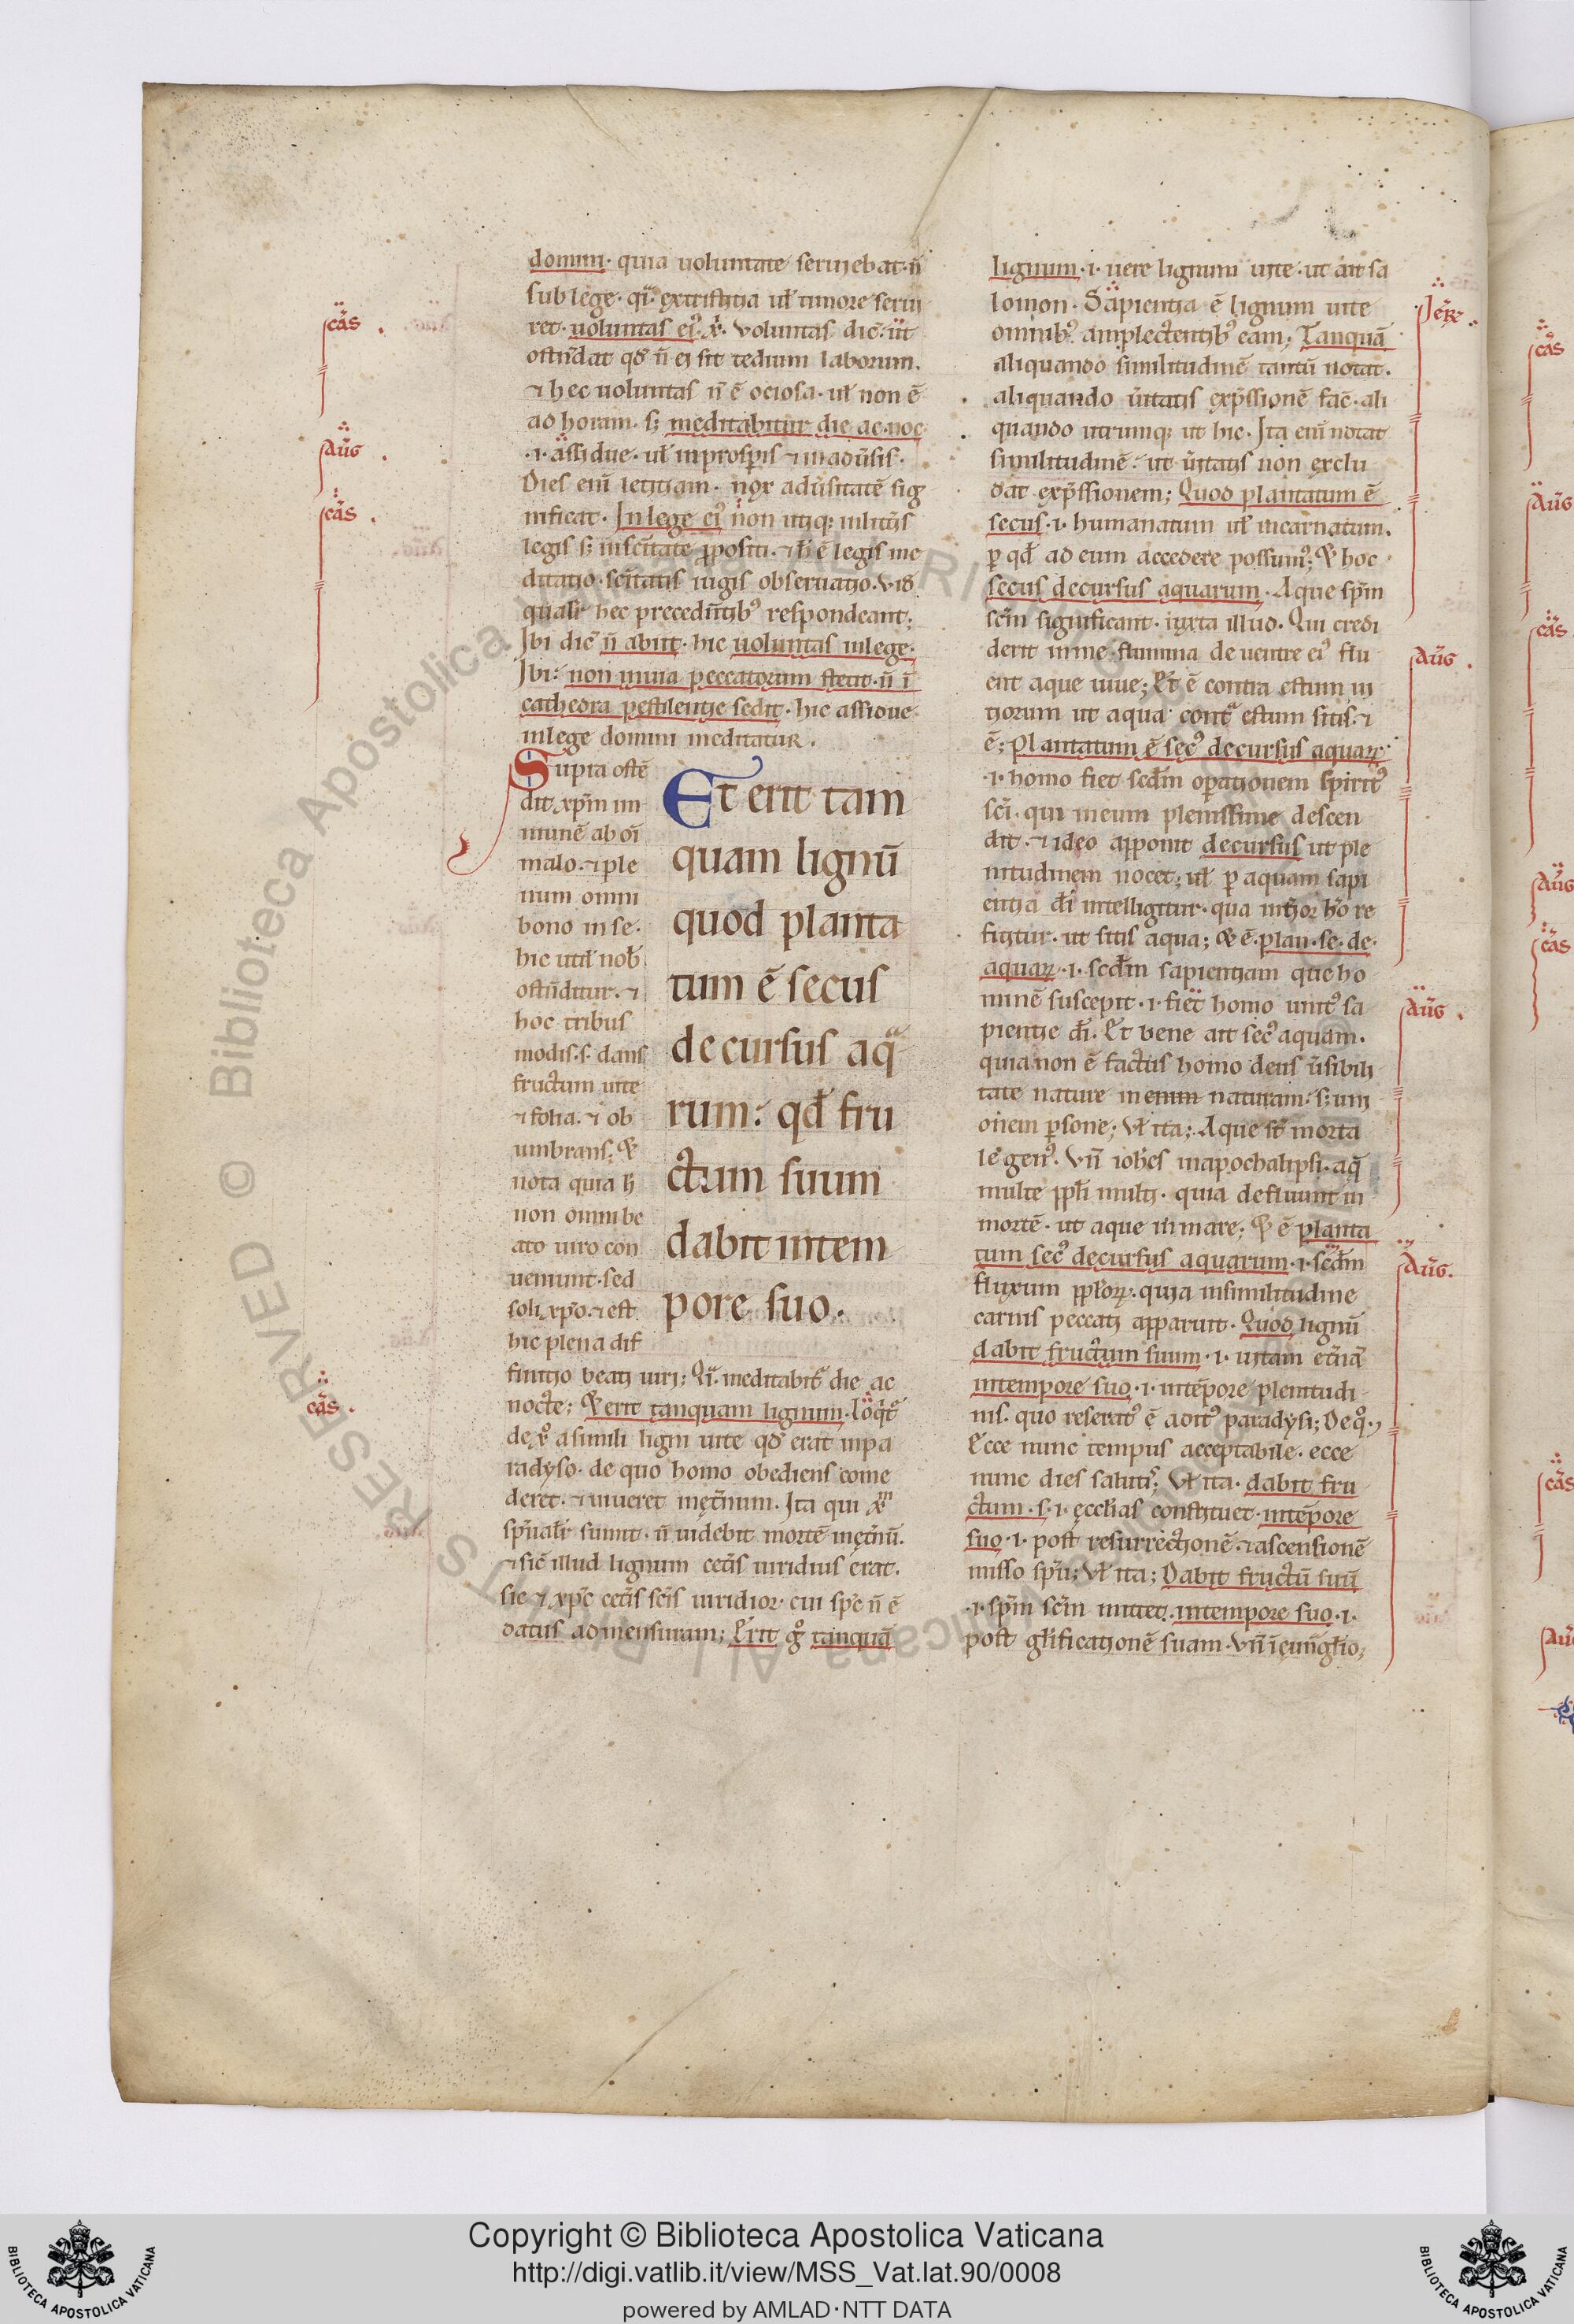 domini· quia uoluntate seruiebat· n̄
sub lege· qꝛ̄ ex tristitia ul̄ timore serui
ret· uoluntas eiꝰ. uoluntas dic̄· ut
ostn̄dat qđ n̄ ei sit tedium laborum.
⁊ hec uoluntas n̄ ē ociosa· ul̄ non ē
ad horam· sꝫ meditabitur die ac noc·
·i· assidue· ul̄ in prosꝑis ⁊ in adūsis·
Dies eni letitiam· nox adūsitatē sig
nificat· In lege eiꝰ non utiqꝫ in litt̄is
legis sꝫ in sc̄itate ꝓpositi· ⁊ h̄ ē legis me
ditatio· sc̄itatis iugis obseruatio· vid̄
qualit̄ hec precedn̄tibꝰ respondeant;
Ibi dic̄ n̄ abiit· hic uoluntas in lege·
Ibi: non in uia peccatorum stetit· n̄ ī
cathedra pestilentie sedit· hic assidue
in lege domini meditatur.
Supra ostē
dit xp̄m im
munē ab oī
malo· ⁊ ple
num omni
bono in se·
hic util̄ nob̄
ostn̄ditur· ⁊
hoc tribus
modis· s· dans
fructum uite
⁊ folia· ⁊ ob
umbrans; Et
nota quia h̄
non omni be
ato uiro con
ueniunt· sed
soli xp̄o· ⁊ est
hic plena dif
finitio beati uiri; Qꝛ̄ meditabit̄ die ac
nocte; Et erit tanquam lignum· loqͥtꝰ
de xꝰ a simili ligni uite qđ erat in pa
radyso· de quo homo obediens come
deret· ⁊ uiueret in et̄num· Ita qui
sp̄ualit̄ sumit· n̄ uidebit mortē in et̄nū.
⁊ sic̄ illud lignum cet̄is uiridius erat.
sic ⁊ xp̄c cet̄is sc̄is uiridior· cui sp̄c n̄ ē
datus ad mensuram; Erit gͦ tanquā
Et erit tam
quam lignū
quod planta
tum ē secus
decursus aqͣ
rum: qđ fru
ctum suum
dabit in tem
pore suo.
lignum· i· uere lignum uite· ut ait sa
lomon· Sapientia ē lignum uite
omnibꝰ amplectentibꝰ eam; Tanquā
aliquando similitudinē tantū notat.
aliquando ūitatis exp̄ssionē fac̄· ali
quando utrumqꝫ ut hic· Ita eni notat
similitudinē· ut ūitatis non exclu
dat exp̄ssionem; Quod plantatum ē
secus· i· humanatum ul̄ incarnatum.
ꝑ qđ ad eum accedere possumꝰ; Et hoc
secus decursus aquarum· Aque sp̄m
sc̄m significant· iuxta illud· Qui credi
derit in me flumina de uentre eiꝰ flu
ent aque uiue; Et ē contra estum ui
tiorum ut aqua contͣ estum sitis· ⁊
ē; Plantatum ē secꝰ decursus aquaꝝ
·i· homo fiet scd̄m oꝑationem spiritꝰ
sc̄i· qui in eum plenissime descen
dit· ⁊ ideo apponit decursus ut ple
nitudinem nocet; ul̄ ꝑ aquam sapi
entia d̄i intelligitur· qua
figitur· ut sitis aqua; Et ē· plan· se· de·
aquaꝝ· i· scd̄m sapientiam que ho
minē suscepit· i· fiet homo unitꝰ sa
pientie d̄i· Et bene ait secꝰ aquam.
quia non ē factus homo deus ūsibili
tate nature in enim naturam· sꝫ uni
onem ꝑsone; Vl̄ ita; Aque st̄ morta
le genꝰ· vn̄ ioh̄es in apochalipsi· aq̄
multe ppl̄i multi· quia defluunt in
mortē· ut aque in mare; Et ē planta
tum secꝰ decursus aquarum· i· scd̄m
fluxum ppl̄oꝝ· quia in similitudine
carnis peccati apparuit· Quod lignū
dabit fructum suum· i· uitam et̄nā
in tempore suo· i· in tēpore plenitudi
nis· quo reseratꝰ ē aditꝰ paradysi; De qͦ·
Ecce nunc tempus acceptabile· ecce
nunc dies salutis; Vl̄ ita· dabit fru
ctum· s· i· eccl̄ias constituet· in tēpore
suo· i· post resurrectionē ⁊ ascensionē
misso sp̄u; Vl̄ ita; Dabit fructū suū
·i· sp̄m sc̄m mittet· in tempore suo· i·
post gl̄ificationē suam· Vn̄ ī euangl̄io;
cas̄.
Aug̅.
cas̄.
cas̄.
Ier̄.
Aug̅.
Aug̅.
Aug̅.
cas̄
Aug̅
cas̄
Aug̅
cas̄
cas̄
Aug̅
© Biblioteca Apostolica Vaticana ALL RIGHTS RESERVED
Copyright © Biblioteca Apostolica Vaticana
http://digi.vatlib.it/view/MSS_Vat.lat.90/0008
powered by AMLAD·NTT DATA
BIBLIOTECA APOSTOLICA VATICANA
BIBLIOTECA APOSTOLICA VATICANA